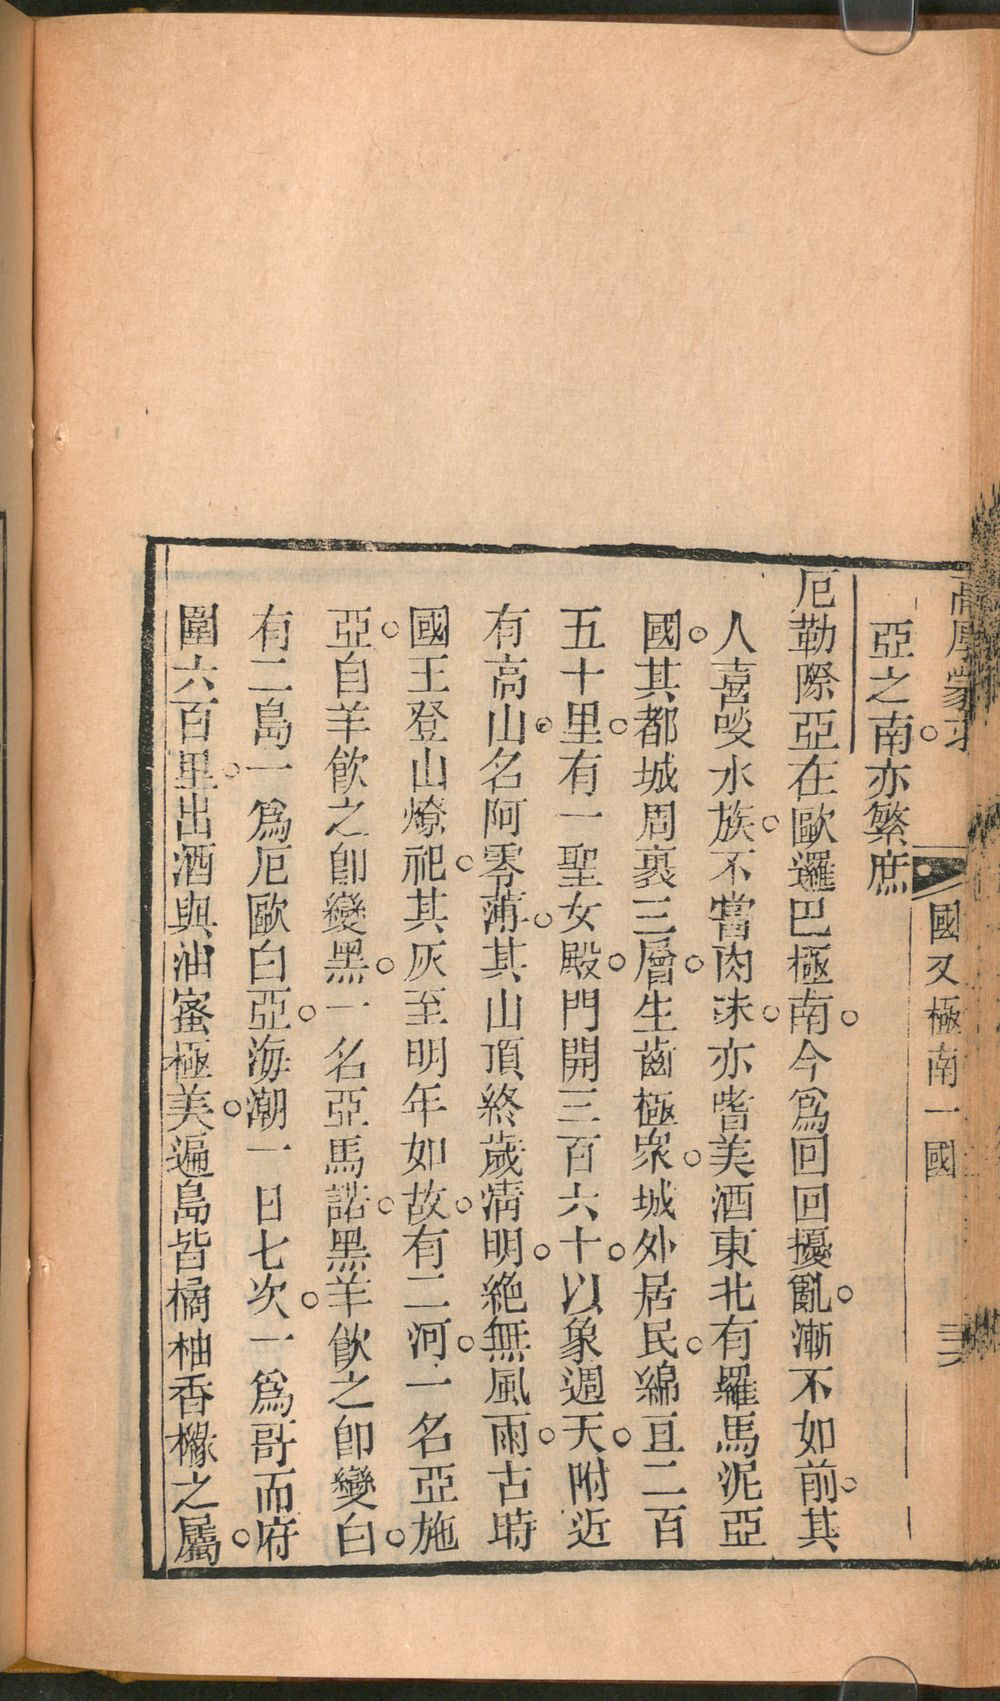 高厚蒙求
國又極南一國
三六
亞之南。亦繁庶
厄勒際亞在歐邏巴極南。今爲回回擾亂。漸不如前。其
人喜啖水族。不嘗肉味。亦嗜美酒東北有羅馬泥亞
國。其都城周裏三層。生齒極衆。城外居民。綿亘二百
五十里。有一聖女殿。門開三百六十。以象週天。附近
有高山。名阿零蒲。其山頂終歲淸明。絶無風雨。古時
國王登山燎祀。其灰至明年如故。有二河。一名亞施
亞。自羊飮之卽變黑。一名亞馬諾。黑羊飮之卽變白。
有二島一爲厄歐白亞。海潮一日七次。一爲哥而府
圍六百里。出酒與油蜜極美。遍島皆橘柚香櫞之屬。